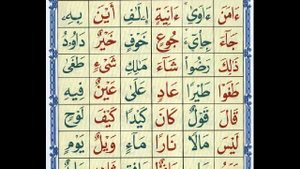 ءَامَنَ ءَاوٰى ءَانِيَةٍ اٖلٰفِ اَيْنَ بِهٖ
جَآءَ جِائْ جُوْعٍ خَوْفٍ خَيْرٌ دَاوٗدُ
ذٰلِكَ رَضُوْا شَآءَ مَالِكِ شَيْءٍ طَغٰى
طَغَوْا طَيْرًا عَادٍ عَلٰى عَيْنٌ فِيْهِ
قَالَ قَوْلٌ كَانَ كَيْدًا كَيْفَ لَوْحٍ
لَيْسَ مَالًا نَارًا مَآءٍ وَيْلٌ يَوْمٍ